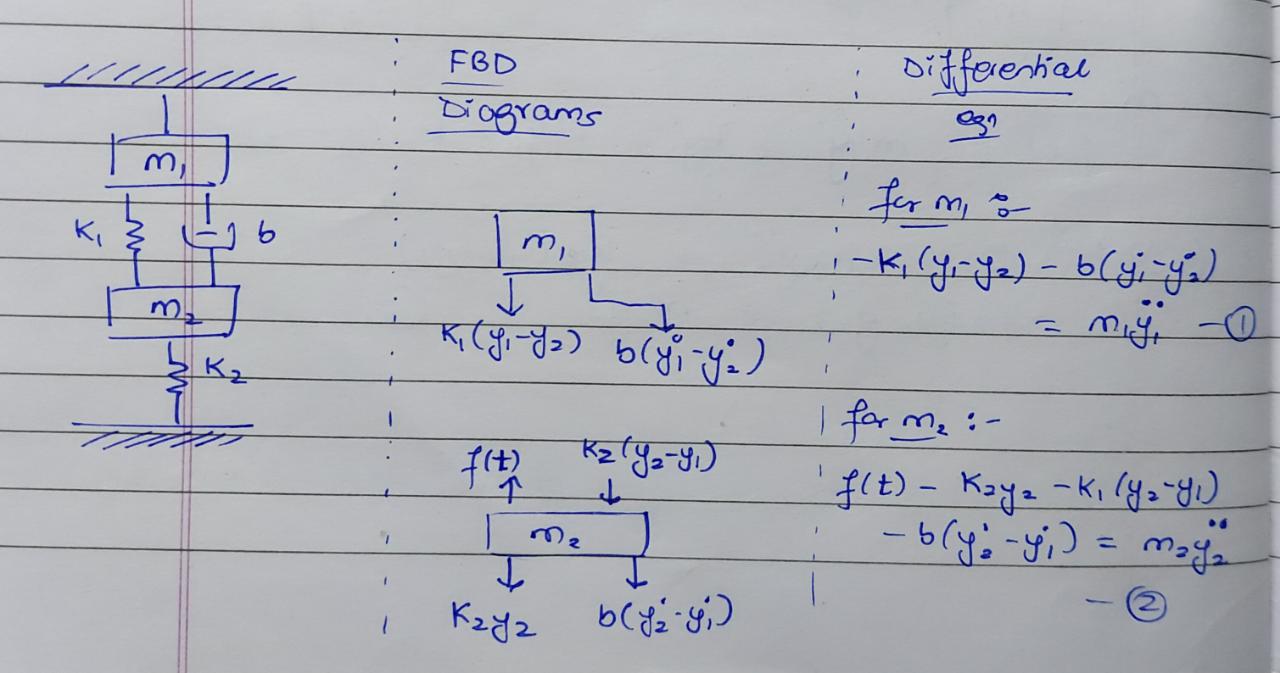 m₁
K₁
b
m₂
K₂
FBD
Diagrams
m₁
K₁(y₁-y₂) b(ẏ₁-ẏ₂)
f(t) K₂(y₂-y₁)
m₂
K₂y₂ b(ẏ₂-ẏ₁)
Differential
eqn
for m₁ :-
-K₁(y₁-y₂) - b(ẏ₁-ẏ₂)
= m₁ÿ₁ -①
for m₂ :-
f(t) - K₂y₂ -K₁(y₂-y₁)
- b(ẏ₂-ẏ₁) = m₂ÿ₂
- ②